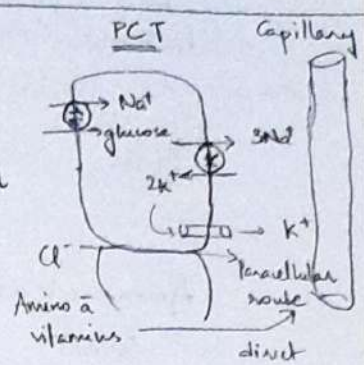 PCT
Capillary
Na⁺
glucose
3Na⁺
2K⁺
K⁺
Cl⁻
Paracellular
route
Amino ā
vitamins
direct